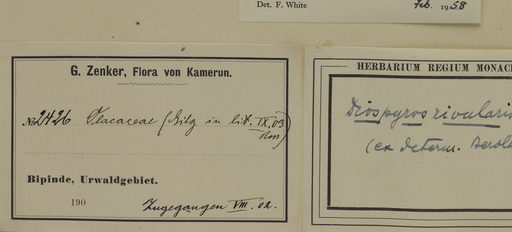 Det. F. White Feb. 1958
G. Zenker, Flora von Kamerun.
No 2426 Icacaceae (Gilg in lit. IX.03)
Bipinde, Urwaldgebiet.
190 Zugegangen VIII. 02.
HERBARIUM REGIUM MONAC
Diospyros rivularis
(ex determ.